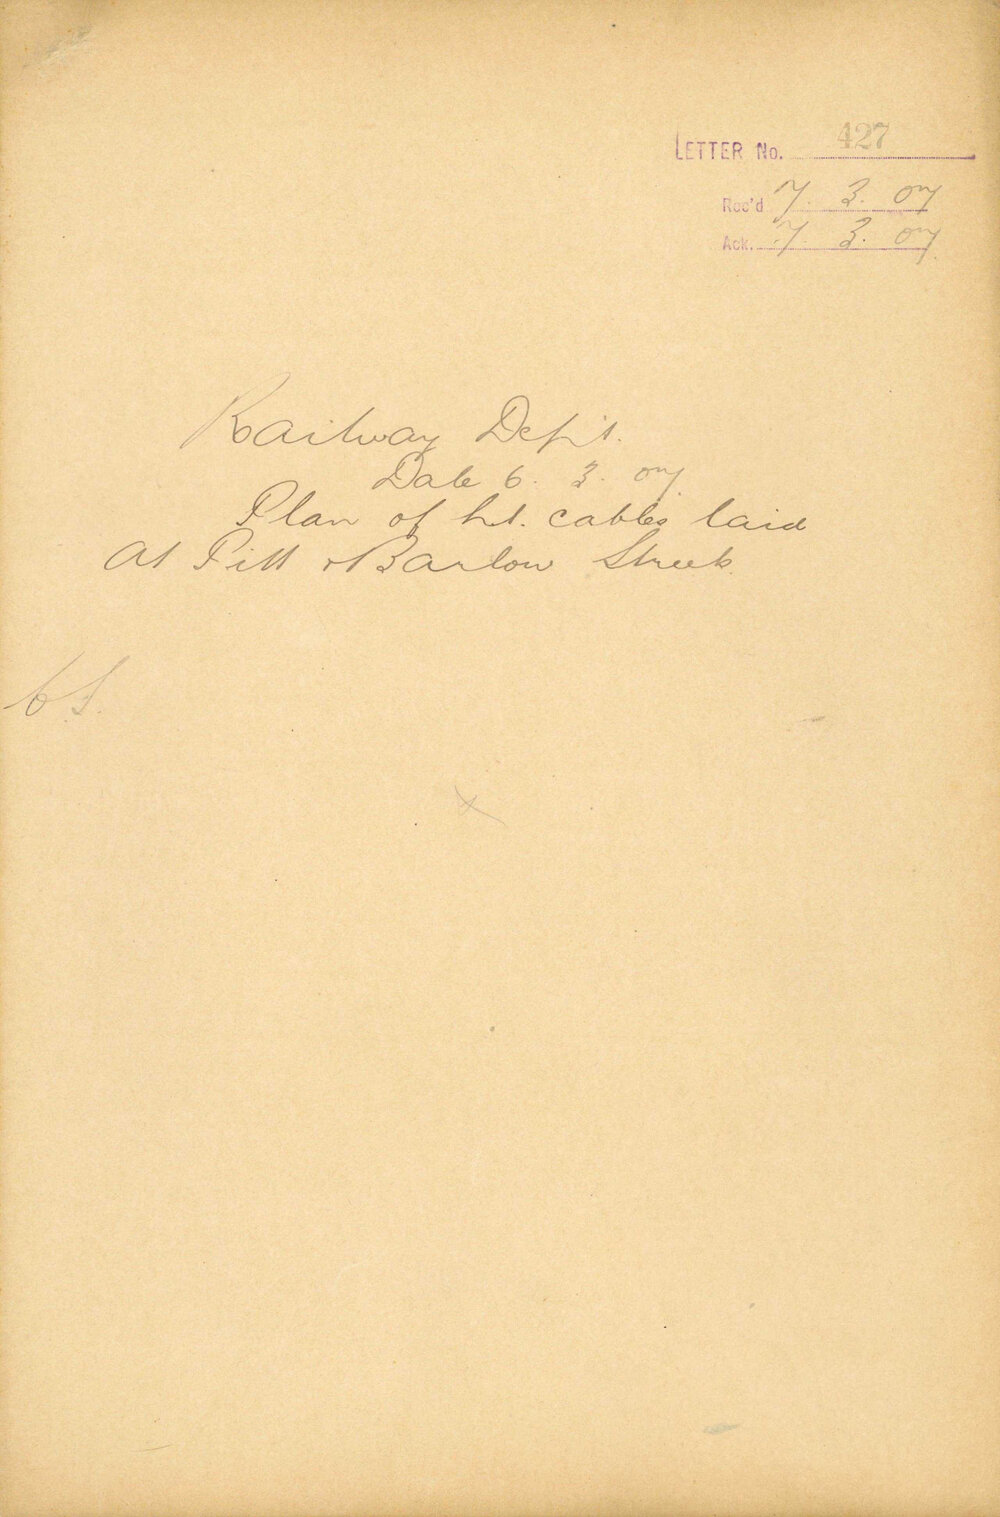 LETTER No. 427
Rec'd 7. 3. 07
Ack. 7. 3. 07
Railway Dep't.
Date 6. 3. 07
Plan of h.t. cables laid
at Pitt & Barlow Streets